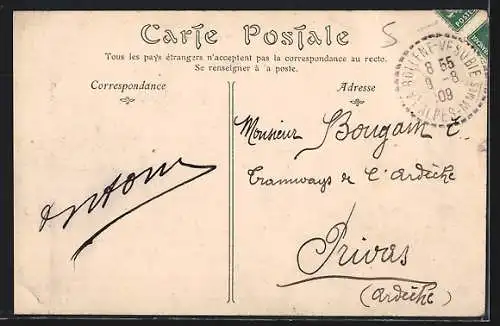 Carte Postale
Tous les pays étrangers n'acceptent pas la correspondance au recto.
Se renseigner à a poste.
Correspondance
Adresse
5
ROQUEBILLIÈRE-VÉSUBIE
8 55
9 - 8
09
ALPES-MMES
POSTES
Monsieur Bougain E.
Tramways de l'Ardèche
Privas
(Ardèche)
Antoni